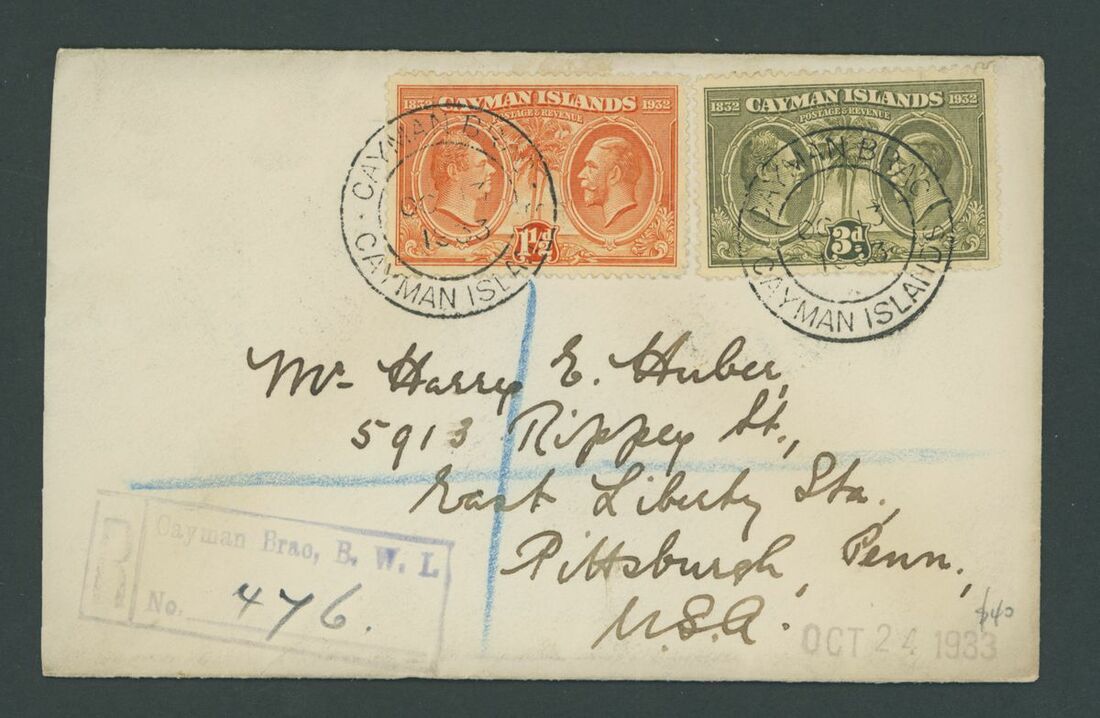 1832 CAYMAN ISLANDS 1932
POSTAGE & REVENUE
1½d
1832 CAYMAN ISLANDS 1932
POSTAGE & REVENUE
3d
CAYMAN BRAC
OC 13
CAYMAN ISLANDS
CAYMAN BRAC
OC 13
CAYMAN ISLANDS
Mr. Harry E. Huber,
5913 Rippey St.,
East Liberty Sta.,
Pittsburgh, Penn.,
U.S.A.
R
Cayman Brac, B. W. I.
No. 476.
$40
OCT 24 1933